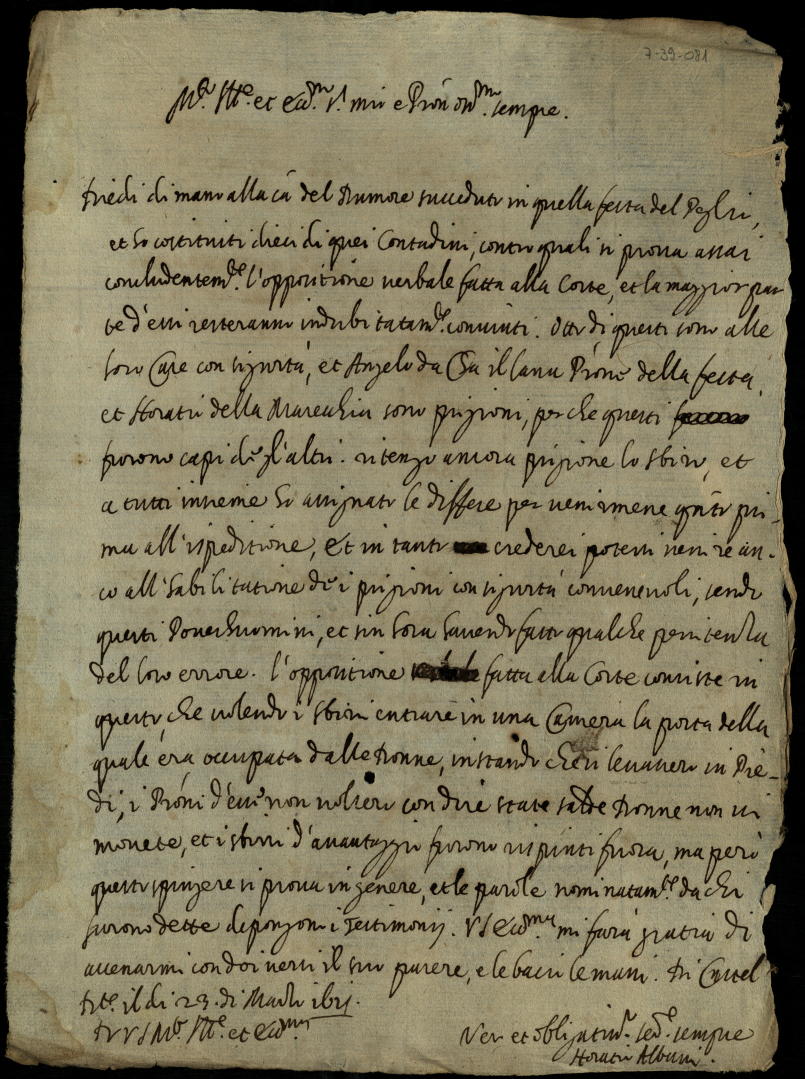 7-39-081
M.to Ill.re et Ecc.mo S.r mio e Pron oss.mo sempre.
Diedi di mano alla cã del Rumore succeduto in quella festa del Peglio,
et ho costituiti dieci di quei Contadini, contro quali si prova assai
concludentem.te l'oppositione verbale fatta alla Corte, et la maggior par
te d'essi resteranno indubitatam.te convinti. Otto di questi sono alle
loro Case con sigurtà, et Angelo da Cà il Prone della festa,
et Horatio della Marecchia sono prigioni, perche questi
furono capi de gl'altri. ritengo ancora prigione lo sbirro, et
a tutti insieme ho assignato le diffese per venirmene quãto pri-
ma all'ispeditione, et in tanto crederei potessi venire an-
co all'habilitatione de i prigioni con sigurtà convenevoli, sendo
questi Poveri huomini, et sin hora havendo fatto qualche penitenza
del loro errore. l'oppositione fatta alla Corte consiste in
questo, che volendo i sbirri entrare in una Camera la porta della
quale era occupata dalle Donne, instando che si levassero in Pie-
di, i Proni d'esse non volsero con dire state salde Donne non vi
movete, et i sbirri d'avantaggio furono rispinti fuora, ma però
questo spingere si prova in genere, et le parole nominatam.te da chi
furono dette depongono i Testimonij. VS Ecc.ma mi farà gratia di
accenarmi con doi versi il suo parere, e le bacio le mani. Di Castel
D.te il di 23. di Marzo
Di VS M.to Ill.re et Ecc.ma
Ser.e et obligatiss.o sempre
Horatio Albani.